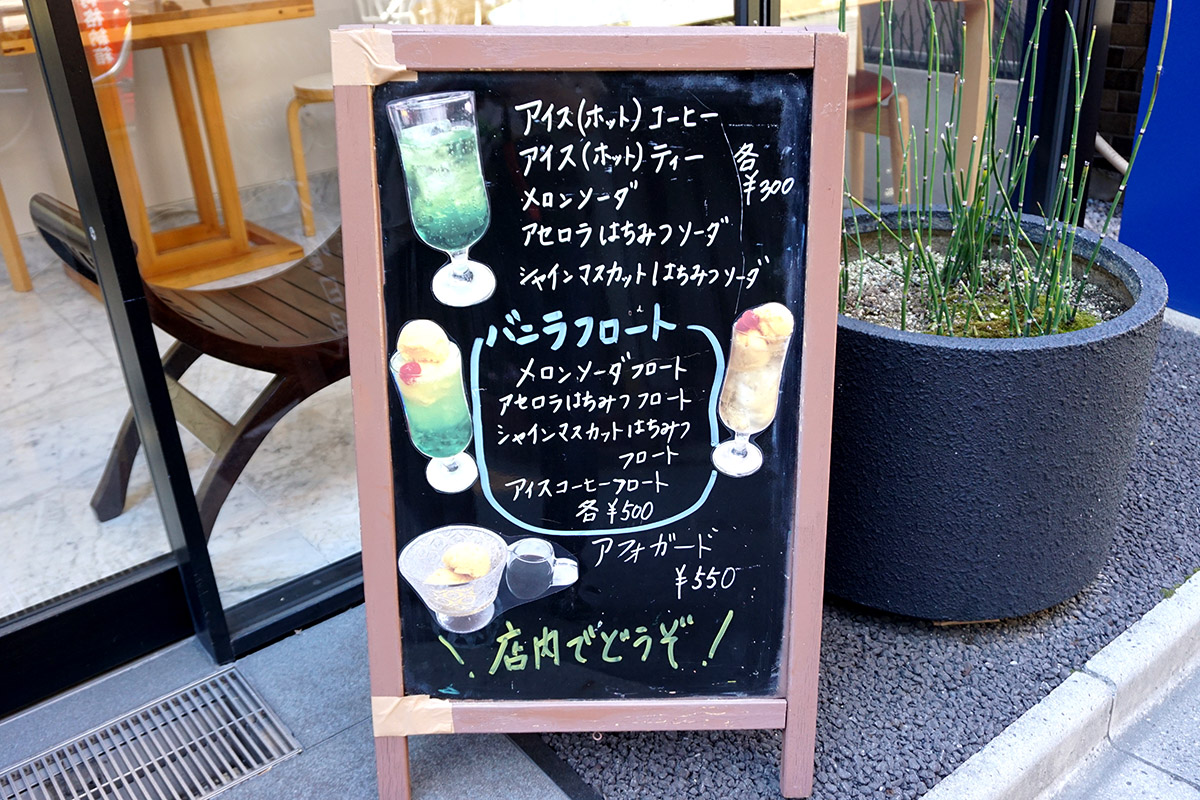 アイス(ホット)コーヒー
アイス(ホット)ティー
各
¥300
メロンソーダ
アセロラはちみつソーダ
シャインマスカットはちみつソーダ
バニラフロート
メロンソーダフロート
アセロラはちみつフロート
シャインマスカットはちみつ
フロート
アイスコーヒーフロート
各¥500
アフォガード
¥550
店内でどうぞ!